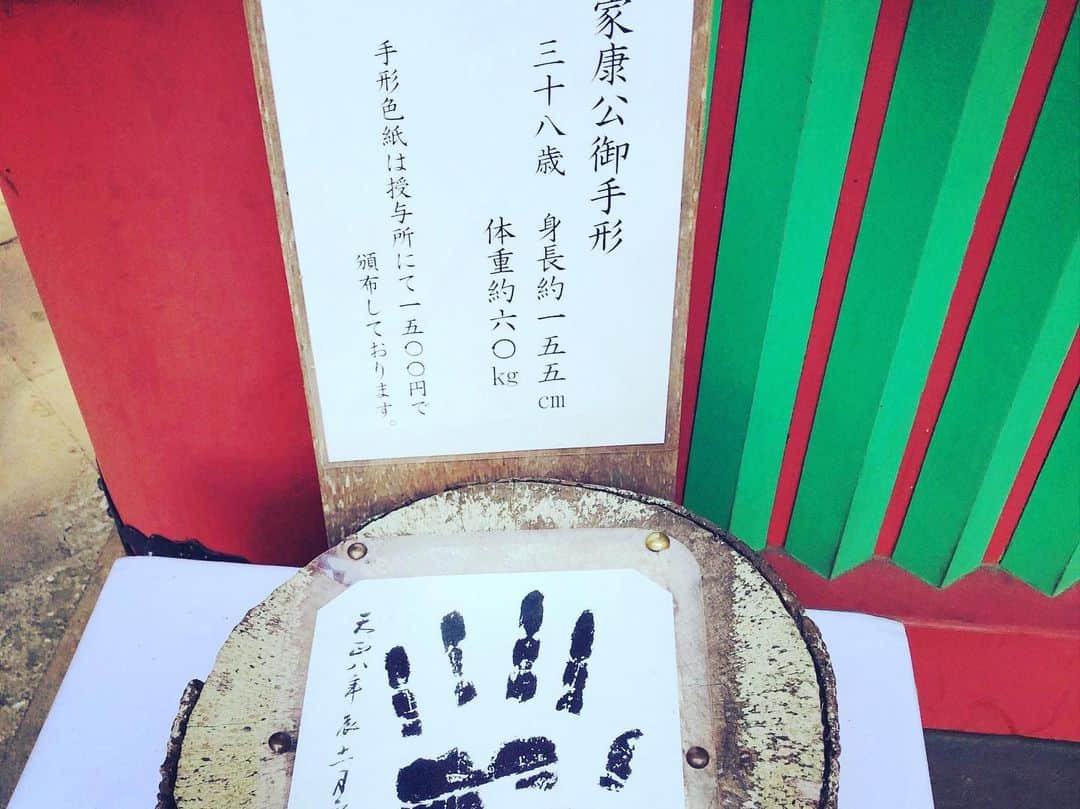 家康公御手形
三十八歳 身長約一五五cm
体重約六〇kg
手形色紙は授与所にて一五〇〇円で
頒布しております。
天正八年辰十一月